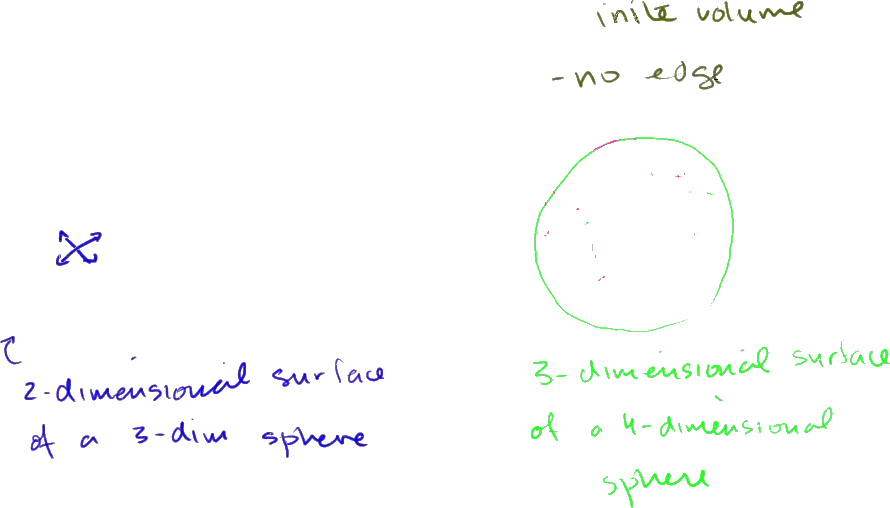 inite volume
- no edge
2-dimensional surface
of a 3-dim sphere
3-dimensional surface
of a 4-dimensional
sphere